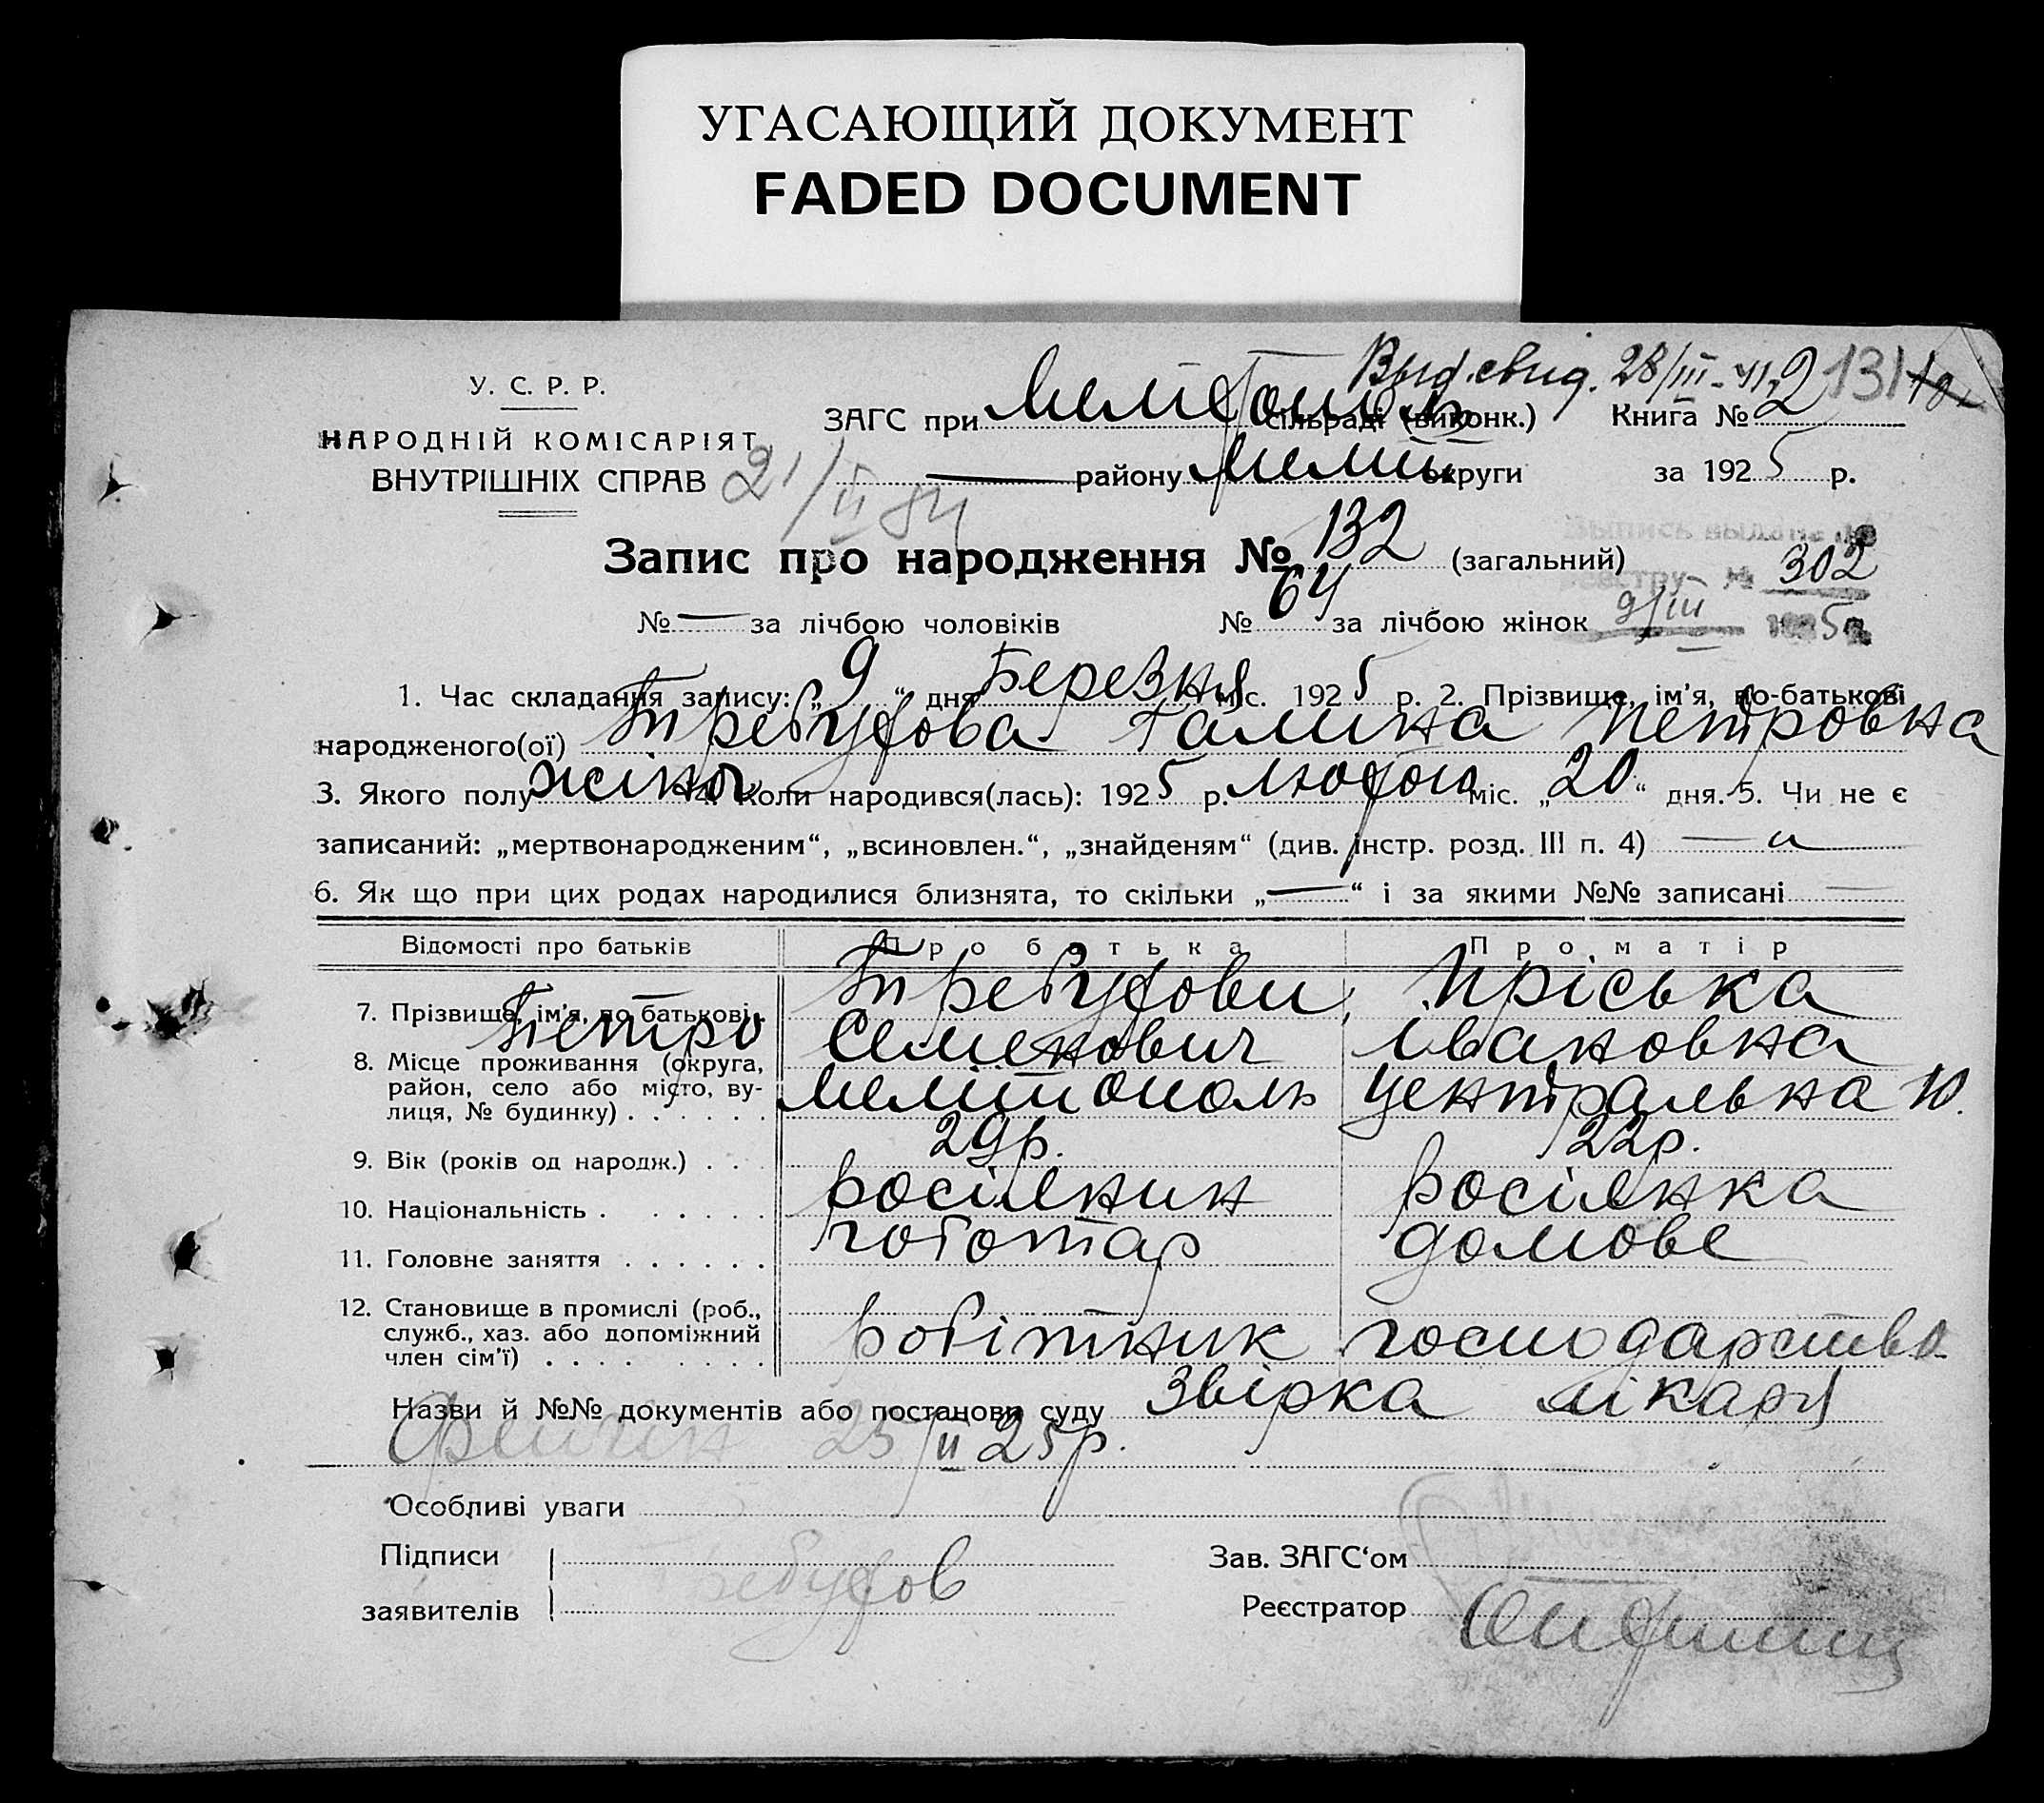 УГАСАЮЩИЙ ДОКУМЕНТ
FADED DOCUMENT
Выд. свид. 28/III-41 2 131
У. С. Р. Р.
НАРОДНІЙ КОМІСАРІЯТ
ВНУТРІШНІХ СПРАВ
21/II 54
ЗАГС при Мелітополь сільраді (виконк.) Книга № 2
— району Меліт округи за 1925 р.
Запис про народження № 132 (загальний)
Выпись выдана
реєстру № 302
№ — за лічбою чоловіків № 64 за лічбою жінок 9/III 1925
1. Час складання запису: „9“ дня Березня міс. 1925 р. 2. Прізвище, ім’я, по-батькові
народженого(ої) Требуфова Галина Петровна
3. Якого полу жіноч 4. Коли народився(лась): 1925 р. лютого міс. „20“ дня. 5. Чи не є
записаний: „мертвонародженим“, „всиновлен.“, „знайденям“ (див. інстр. розд. III п. 4) —
6. Як що при цих родах народилися близнята, то скільки „—“ і за якими №№ записані —
Відомості про батьків Про батька Про матір
7. Прізвище, ім’я, по батькові. Требуфови, Пріська
Петро Семенович Івановна
8. Місце проживання (округа,
район, село або місто, ву-
лиця, № будинку) . . . . . . Мелітополь Центральна 10.
9. Вік (років од народж.) . . . 29р. 22р.
10. Національність . . . . . . росіянин росіянка
11. Головне заняття . . . . . . чоботар домове
12. Становище в промислі (роб.,
служб., хаз. або допоміжний
член сім’ї) . . . . . . . . робітник господарство
Назви й №№ документів або постанови суду Звірка лікаря
25/II 25р.
Особливі уваги
Підписи
заявителів Требуфов
Зав. ЗАГС‘ом
Реєстратор